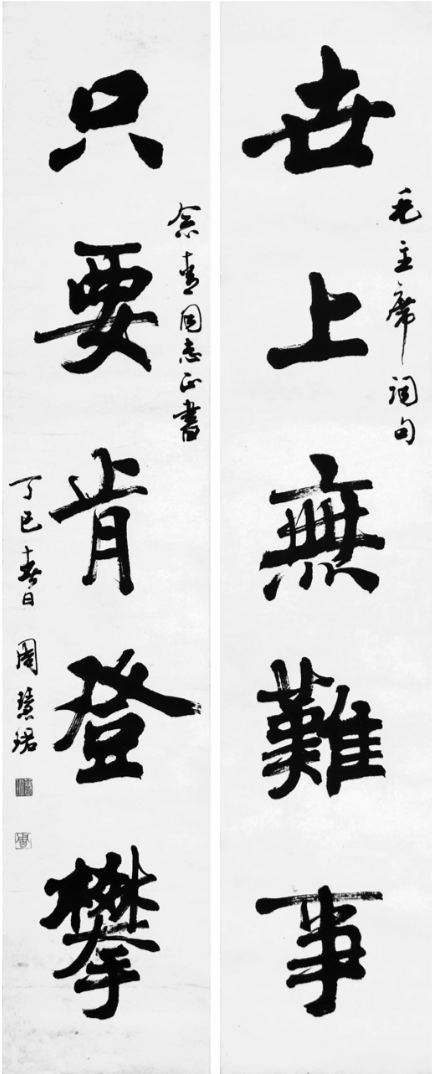 世上無難事
毛主席詞句
只要肯登攀
念青同志正書
丁巳春日 周慧珺